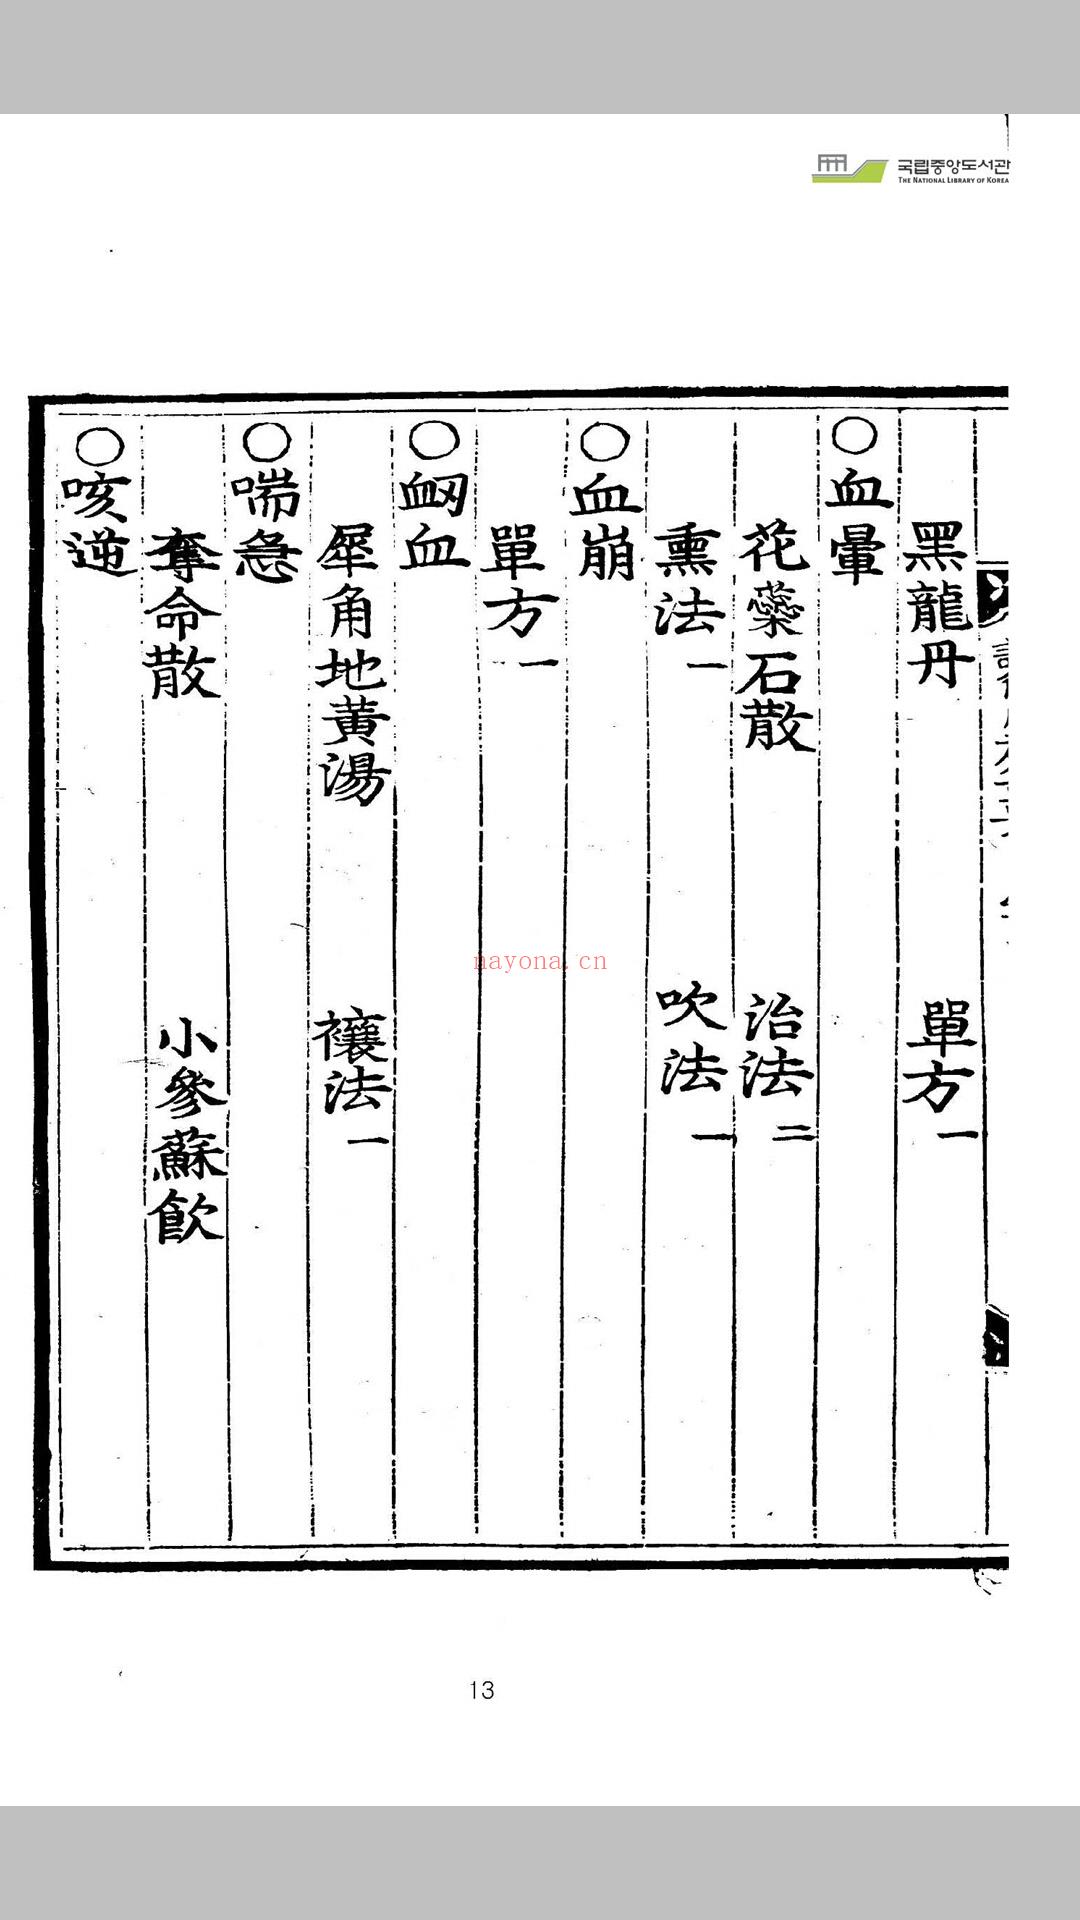 국립중앙도서관
THE NATIONAL LIBRARY OF KOREA
黑龍丹 單方一
○血暈
花蘂石散 治法二
熏法一 吹法一
○血崩
單方一
○衂血
犀角地黃湯 禳法一
○喘急
奪命散 小參蘇飮
○咳逆
nayona.cn
13